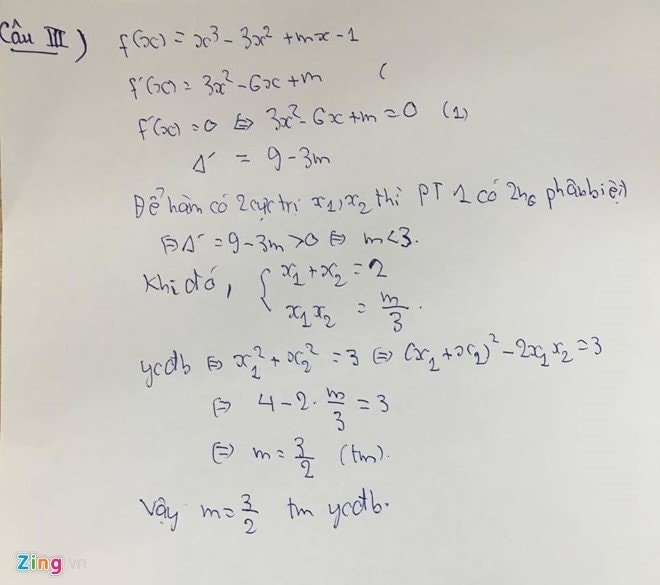 Câu III) f(x) = x³ - 3x² + mx - 1
f'(x) = 3x² - 6x + m (
f'(x) = 0 ⇔ 3x² - 6x + m = 0 (1)
Δ' = 9 - 3m
Để hàm có 2 cực trị x₁, x₂ thì PT 1 có 2 n₀ phân biệt)
⇔ Δ' = 9 - 3m > 0 ⇔ m < 3.
Khi đó, { x₁ + x₂ = 2
x₁x₂ = m/3.
ycđb ⇔ x₁² + x₂² = 3 ⇔ (x₁ + x₂)² - 2x₁x₂ = 3
⇔ 4 - 2 · m/3 = 3
⇔ m = 3/2 (tm).
Vậy m = 3/2 tm ycđb.
Zing.vn